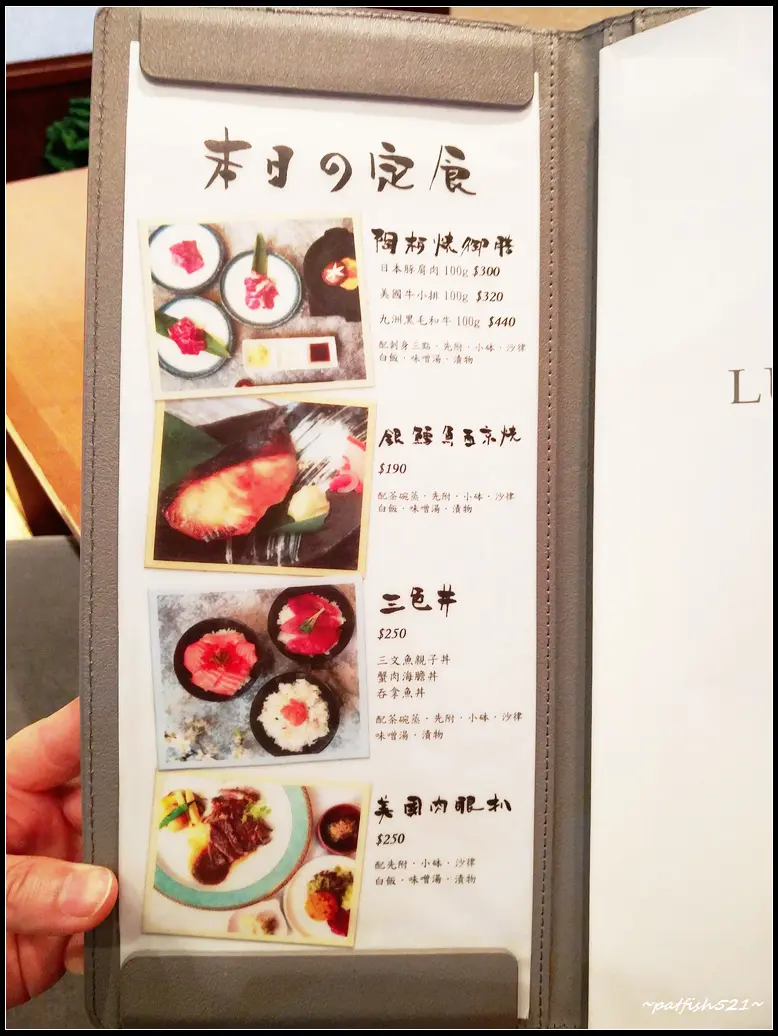 本日の定食
陶板焼御膳
日本豚肩肉 100g $300
美國牛小排 100g $320
九洲黑毛和牛 100g $440
配刺身三點・先附・小鉢・沙律
白飯・味噌湯・漬物
銀鱈魚西京焼
$190
配茶碗蒸・先附・小鉢・沙律
白飯・味噌湯・漬物
三色丼
$250
三文魚親子丼
蟹肉海膽丼
吞拿魚丼
配茶碗蒸・先附・小鉢・沙律
味噌湯・漬物
美國肉眼扒
$250
配先附・小鉢・沙律
白飯・味噌湯・漬物
LU
~patfish521~